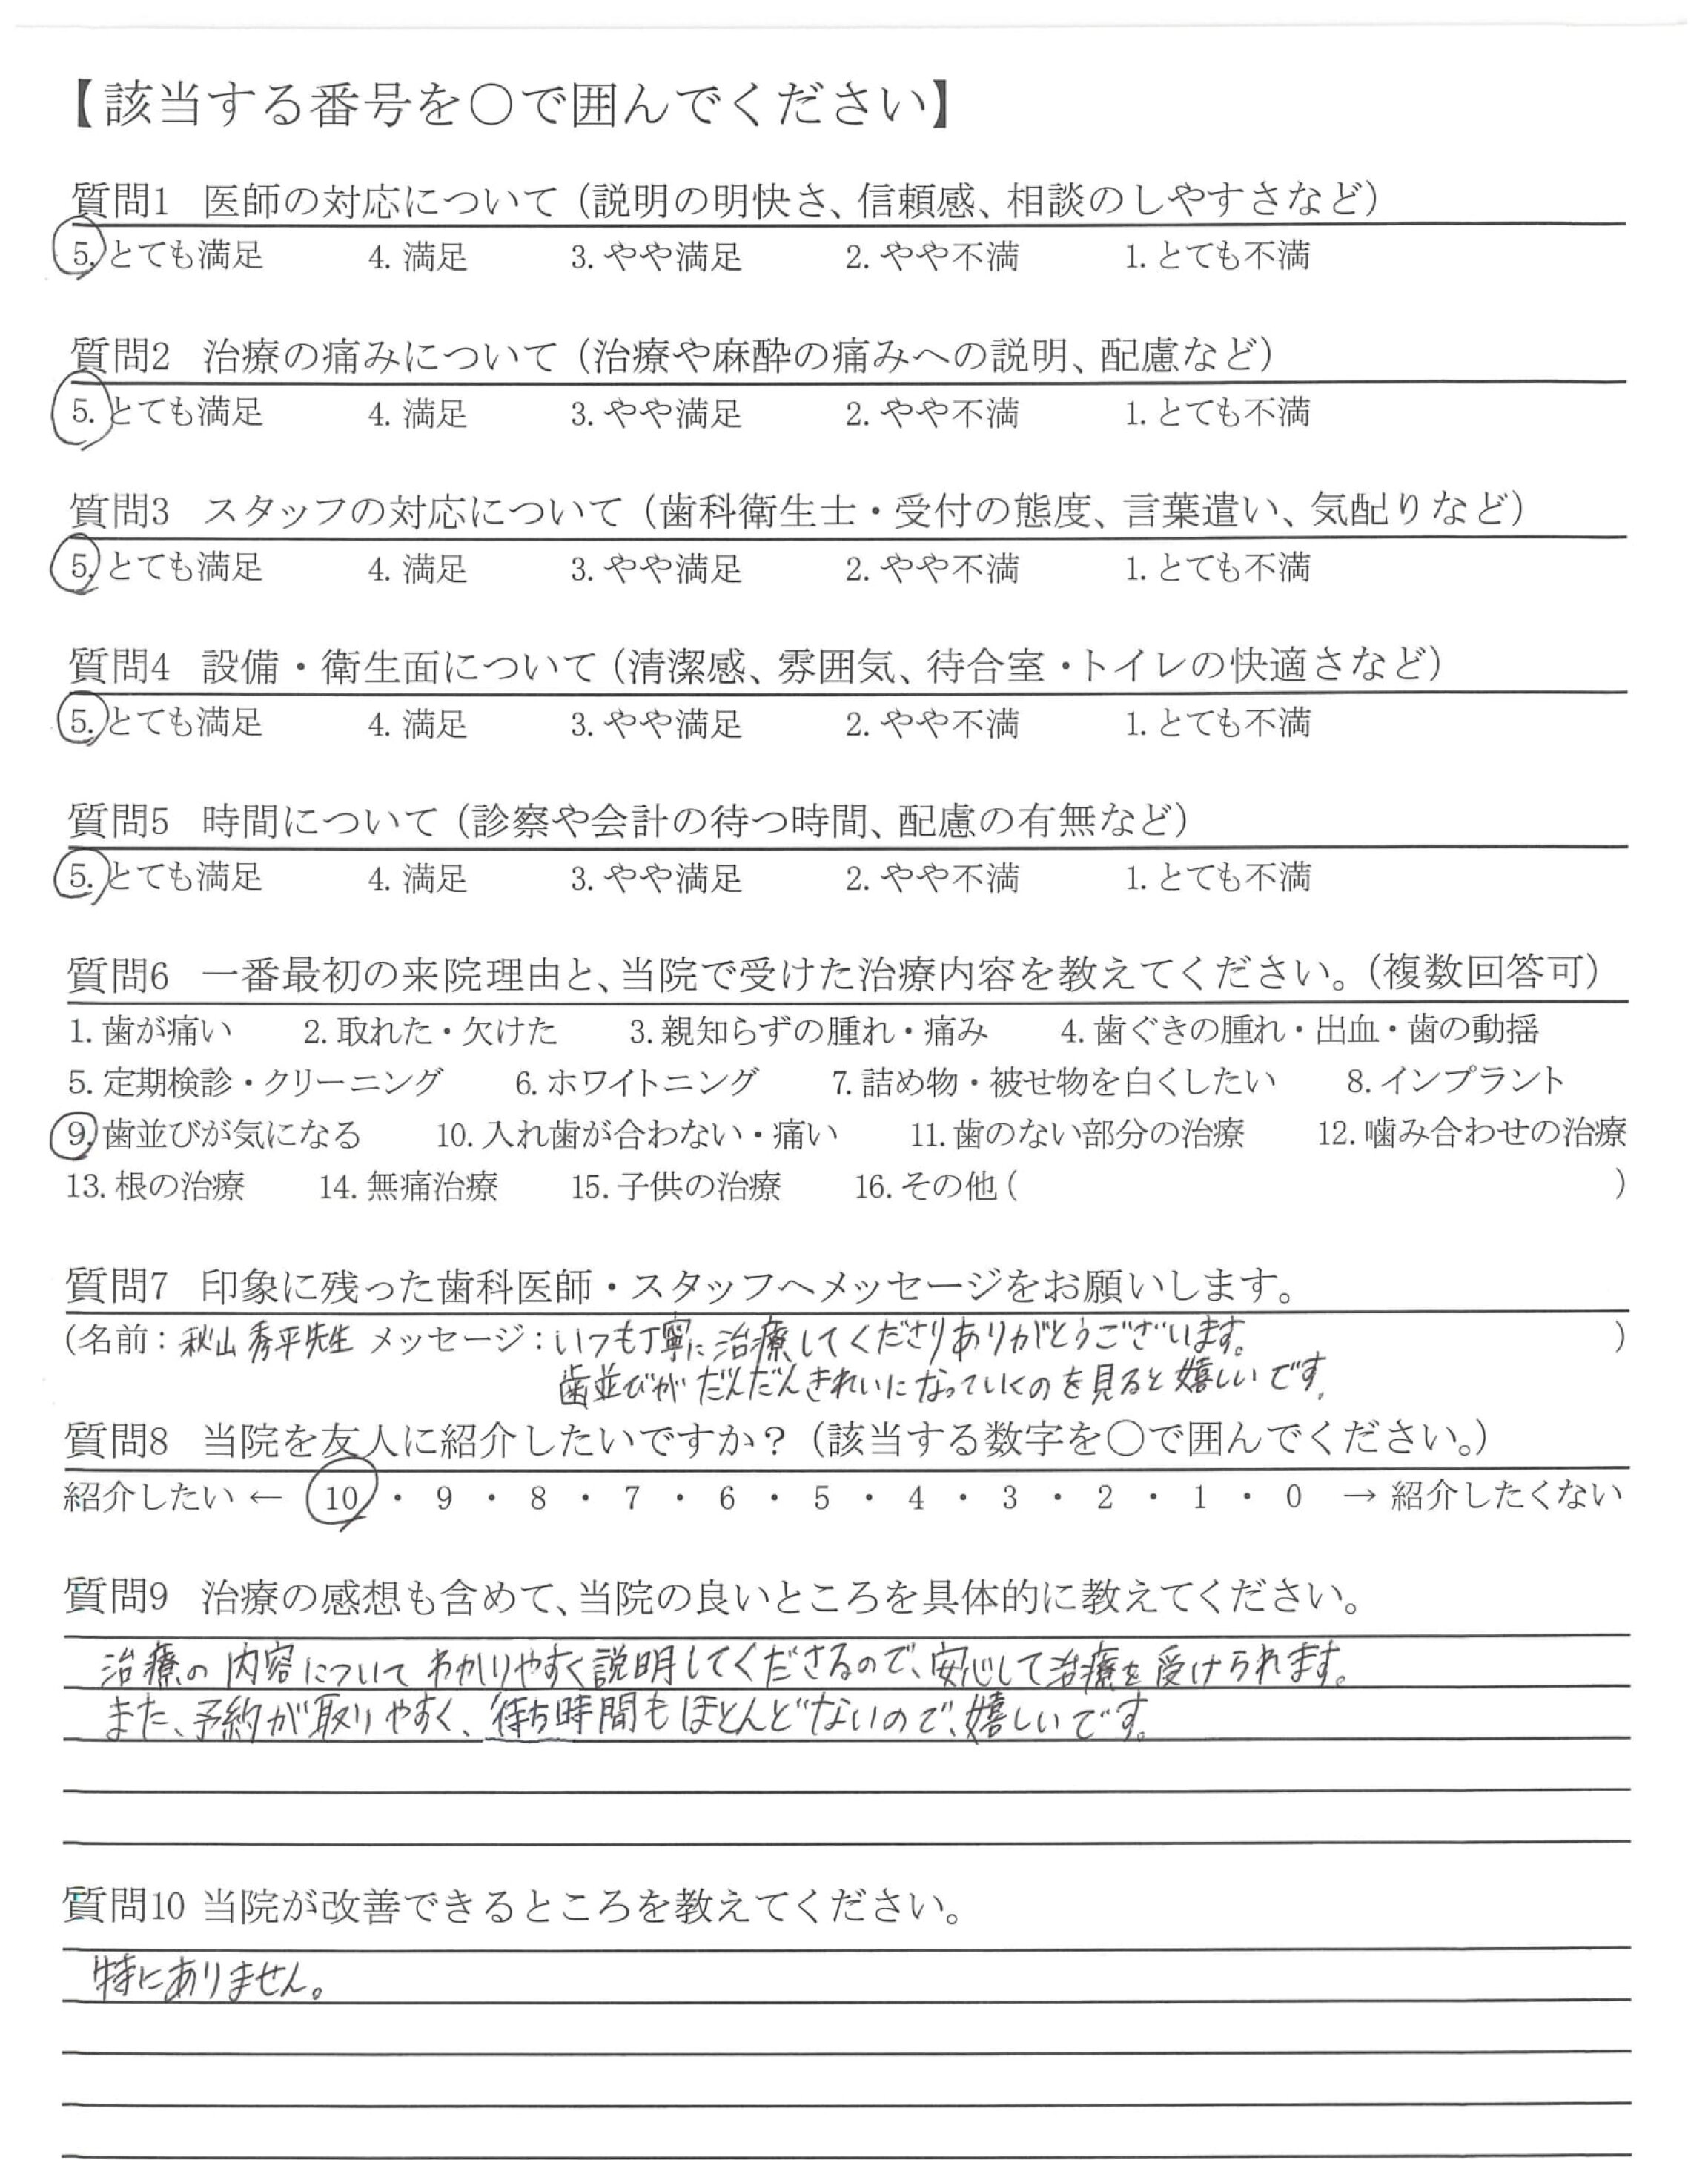 【該当する番号を〇で囲んでください】
質問1 医師の対応について（説明の明快さ、信頼感、相談のしやすさなど）
5. とても満足 4. 満足 3. やや満足 2. やや不満 1. とても不満
質問2 治療の痛みについて（治療や麻酔の痛みへの説明、配慮など）
5. とても満足 4. 満足 3. やや満足 2. やや不満 1. とても不満
質問3 スタッフの対応について（歯科衛生士・受付の態度、言葉遣い、気配りなど）
5. とても満足 4. 満足 3. やや満足 2. やや不満 1. とても不満
質問4 設備・衛生面について（清潔感、雰囲気、待合室・トイレの快適さなど）
5. とても満足 4. 満足 3. やや満足 2. やや不満 1. とても不満
質問5 時間について（診察や会計の待つ時間、配慮の有無など）
5. とても満足 4. 満足 3. やや満足 2. やや不満 1. とても不満
質問6 一番最初の来院理由と、当院で受けた治療内容を教えてください。（複数回答可）
1. 歯が痛い 2. 取れた・欠けた 3. 親知らずの腫れ・痛み 4. 歯ぐきの腫れ・出血・歯の動揺
5. 定期検診・クリーニング 6. ホワイトニング 7. 詰め物・被せ物を白くしたい 8. インプラント
9. 歯並びが気になる 10. 入れ歯が合わない・痛い 11. 歯のない部分の治療 12. 噛み合わせの治療
13. 根の治療 14. 無痛治療 15. 子供の治療 16. その他（ ）
質問7 印象に残った歯科医師・スタッフへメッセージをお願いします。
（名前：秋山秀平先生 メッセージ：いつも丁寧に治療してくださりありがとうございます。）
歯並びがだんだんきれいになっていくのを見ると嬉しいです。
質問8 当院を友人に紹介したいですか？（該当する数字を〇で囲んでください。）
紹介したい ← 10 ・ 9 ・ 8 ・ 7 ・ 6 ・ 5 ・ 4 ・ 3 ・ 2 ・ 1 ・ 0 → 紹介したくない
質問9 治療の感想も含めて、当院の良いところを具体的に教えてください。
治療の内容についてわかりやすく説明してくださるので、安心して治療を受けられます。
また、予約が取りやすく、待ち時間もほとんどないので、嬉しいです。
質問10 当院が改善できるところを教えてください。
特にありません。